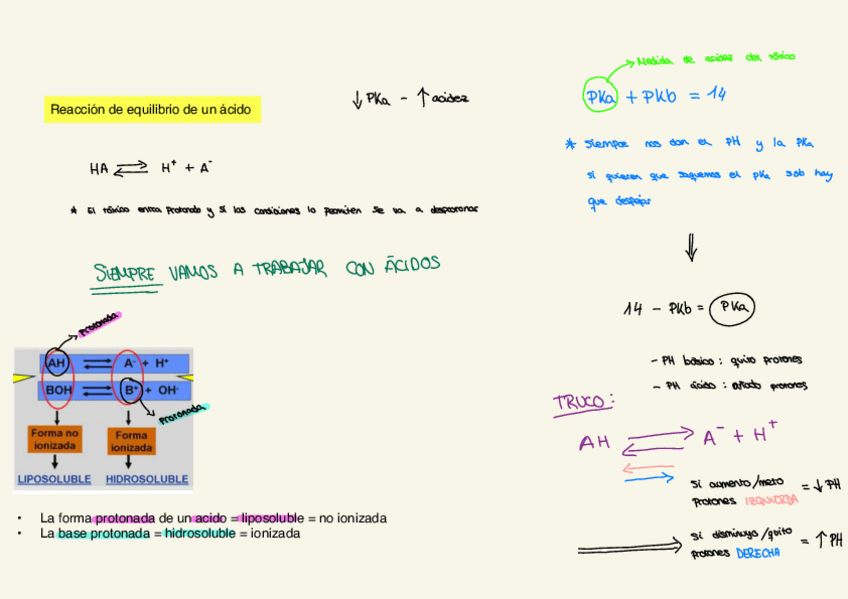 Reacción de equilibrio de un ácido
↓ PKa - ↑ acidez
HA ⇌ H⁺ + A⁻
* El tóxico entra Protonado y si las condiciones lo permiten se va a desprotonar
SIEMPRE VAMOS A TRABAJAR CON ÁCIDOS
Protonada
AH ⇌ A⁻ + H⁺
BOH ⇌ B⁺ + OH⁻
Protonada
Forma no
ionizada
Forma
ionizada
LIPOSOLUBLE HIDROSOLUBLE
• La forma protonada de un acido = liposoluble = no ionizada
• La base protonada = hidrosoluble = ionizada
Medida de acidez del tóxico
PKa + PKb = 14
* Siempre nos dan el PH y la PKa
si quieren que saquemos el PKa sob hay
que despejar
⇓
14 - PKb = PKa
- PH básico : quito protones
- PH ácido : añado protones
TRUCO :
AH ⇌ A⁻ + H⁺
Si aumento/meto = ↓ PH
Protones IZQUIERDA
Si disminuyo/quito = ↑ PH
protones DERECHA